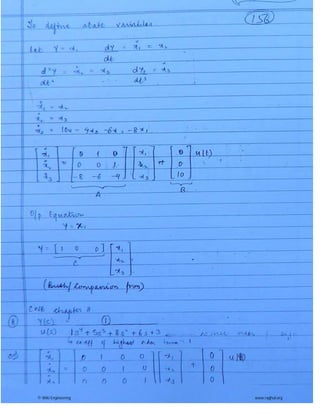 (156)
To define state variables
Let Y = x₁ dy/dt = ẋ₁ = x₂
d²y/dt² = ẋ₂ = x₃ d³y/dt³ = ẋ₃
ẋ₁ = x₂
ẋ₂ = x₃
ẋ₃ = 10u - 4x₃ - 6x₂ - 8x₁
[ẋ₁ ẋ₂ ẋ₃] = [0 1 0; 0 0 1; -8 -6 -4] [x₁ x₂ x₃] + [0 0 10] u(t)
A B
O/p Equation
Y = x₁
Y = [1 0 0] [x₁ x₂ x₃]
C
(Bush/Companion form)
chapter 8
Y(s) (1)
U(s) 1s⁴ + 5s³ + 8s² + 6s + 3
coeff of highest order term = 1
[ẋ₁ ẋ₂ ẋ₃ = 0 1 0 0; 0 0 1 0; 0 0 0 1 x₁ x₂ x₃ + 0 0 0 u(t)
© Wiki Engineering www.raghul.org